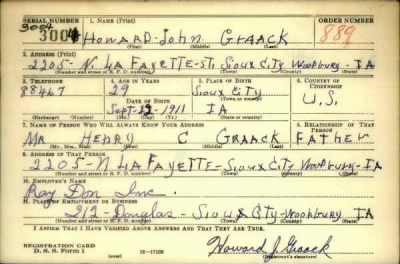 SERIAL NUMBER 1. NAME (Print) ORDER NUMBER
3004
3004 Howard-John Graack 889
(First) (Middle) (Last)
2. ADDRESS (Print)
2205-N. La Fayette-St. Sioux City Woodbury-IA
(Number and street or R. F. D. number) (Town) (County) (State)
3. TELEPHONE 4. AGE IN YEARS 5. PLACE OF BIRTH 6. COUNTRY OF CITIZENSHIP
88467 29 Sioux City U.S.
DATE OF BIRTH (Town or county)
Sept-12-1911 IA
(Mo.) (Day) (Yr.) (State or country)
7. NAME OF PERSON WHO WILL ALWAYS KNOW YOUR ADDRESS 8. RELATIONSHIP OF THAT PERSON
Mr Henry C Graack Father
(Mr., Mrs., Miss) (First) (Middle) (Last)
9. ADDRESS OF THAT PERSON
2205-N La Fayette-Sioux City Woodbury-IA
(Number and street or R. F. D. number) (Town) (County) (State)
10. EMPLOYER'S NAME
Ray Don Inc.
11. PLACE OF EMPLOYMENT OR BUSINESS
212-Douglas-Sioux City-Woodbury IA
(Number and street or R. F. D. number) (Town) (County) (State)
I AFFIRM THAT I HAVE VERIFIED ABOVE ANSWERS AND THAT THEY ARE TRUE.
REGISTRATION CARD
D. S. S. Form 1 Howard J Graack
(Registrant's signature)